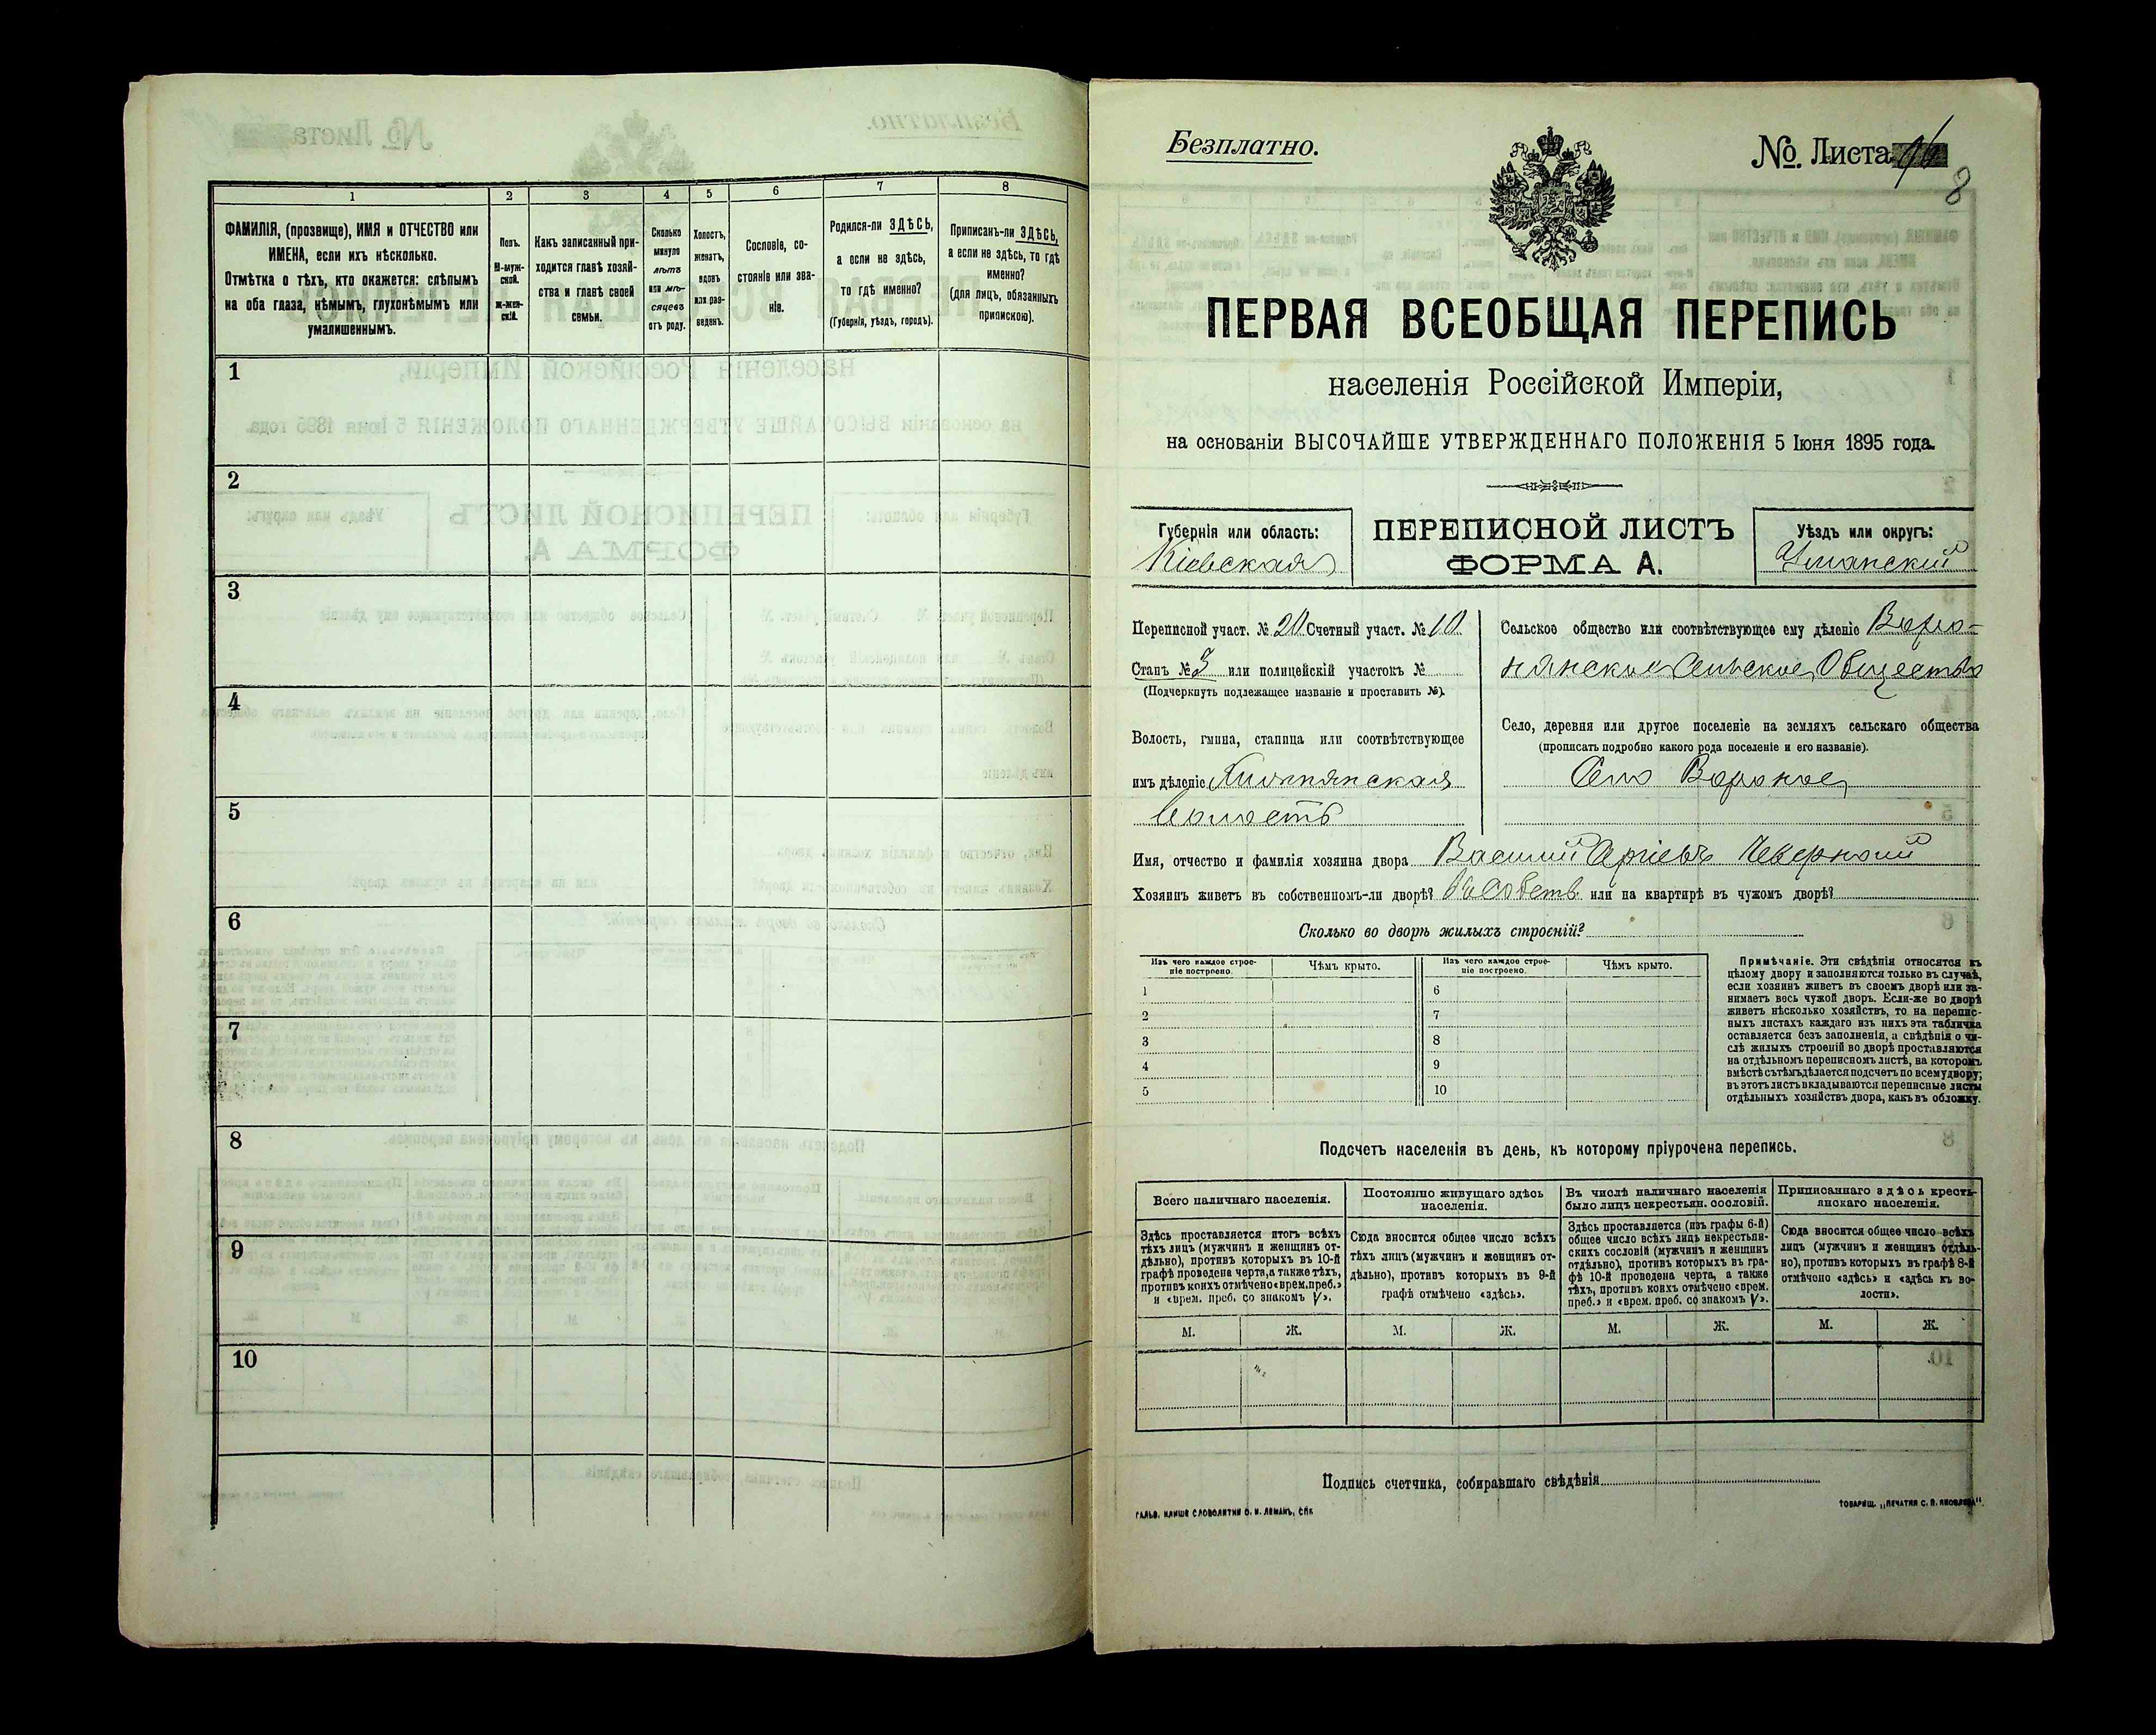 1
2
3
4
5
6
7
8
ФАМИЛІЯ, (прозвище), ИМЯ и ОТЧЕСТВО или
ИМЕНА, если ихъ нѣсколько.
Отмѣтка о тѣхъ, кто окажется: слѣпымъ
на оба глаза, нѣмымъ, глухонѣмымъ или
умалишеннымъ.
Полъ.
М-муж-
ской.
ж-жен-
скій.
Какъ записанный при-
ходится главѣ хозяй-
ства и главѣ своей
семьи.
Сколько
минуло
лѣтъ
или мѣ-
сяцевъ
отъ роду.
Холостъ,
женатъ,
вдовъ
или раз-
веденъ.
Сословіе, со-
стояніе или зва-
ніе.
Родился-ли ЗДѢСЬ,
а если не здѣсь,
то гдѣ именно?
(Губернія, уѣздъ, городъ).
Приписанъ-ли ЗДѢСЬ,
а если не здѣсь, то гдѣ
именно?
(для лицъ, обязанныхъ
припискою).
1
2
3
4
5
6
7
8
9
10
Безплатно.
№ Листа
8
ПЕРВАЯ ВСЕОБЩАЯ ПЕРЕПИСЬ
населенія Россійской Имперіи,
на основаніи ВЫСОЧАЙШЕ УТВЕРЖДЕННАГО ПОЛОЖЕНІЯ 5 Іюня 1895 года.
Губернія или область:
Кіевская
ПЕРЕПИСНОЙ ЛИСТЪ
ФОРМА А.
Уѣздъ или округъ:
Уманскій
Переписной участ. № 20 Счетный участ. № 10
Станъ № 3 или полицейскій участокъ №
(Подчеркнуть подлежащее названіе и проставить №).
Волость, гмина, станица или соотвѣтствующее
имъ дѣленіе
волость
Сельское общество или соотвѣтствующее ему дѣленіе Воро-
нянское Сельское Общество
Село, деревня или другое поселеніе на земляхъ сельскаго общества
(прописать подробно какого рода поселеніе и его названіе).
Село Вороное
Имя, отчество и фамилія хозяина двора Василий
Хозяинъ живетъ въ собственномъ-ли дворѣ? или на квартирѣ въ чужомъ дворѣ?
Сколько во дворѣ жилыхъ строеній?
Изъ чего каждое строе-
ніе построено.
Чѣмъ крыто.
Изъ чего каждое строе-
ніе построено.
Чѣмъ крыто.
1
2
3
4
5
6
7
8
9
10
Примѣчаніе. Эти свѣдѣнія относятся къ
цѣлому двору и заполняются только въ случаѣ,
если хозяинъ живетъ въ своемъ дворѣ или за-
нимаетъ весь чужой дворъ. Если-же во дворѣ
живетъ нѣсколько хозяйствъ, то на перепис-
ныхъ листахъ каждаго изъ нихъ эта табличка
оставляется безъ заполненія, а свѣдѣнія о чи-
слѣ жилыхъ строеній во дворѣ проставляются
на отдѣльномъ переписномъ листѣ, на которомъ
вмѣстѣ съ тѣмъ дѣлается подсчетъ по всему двору;
въ этотъ листъ вкладываются переписные листы
отдѣльныхъ хозяйствъ двора, какъ въ обложку.
Подсчетъ населенія въ день, къ которому пріурочена перепись.
Всего наличнаго населенія.
Здѣсь проставляется итогъ всѣхъ
тѣхъ лицъ (мужчинъ и женщинъ от-
дѣльно), противъ которыхъ въ 10-й
графѣ проведена черта, а также тѣхъ,
противъ коихъ отмѣчено «врем. преб.»
и «врем. преб. со знакомъ V».
Постоянно живущаго здѣсь
населенія.
Сюда вносится общее число всѣхъ
тѣхъ лицъ (мужчинъ и женщинъ от-
дѣльно), противъ которыхъ въ 9-й
графѣ отмѣчено «здѣсь».
Въ числѣ наличнаго населенія
было лицъ некрестьян. сословій.
Здѣсь проставляется (изъ графы 6-й)
общее число всѣхъ лицъ некрестьян-
скихъ сословій (мужчинъ и женщинъ
отдѣльно), противъ которыхъ въ гра-
фѣ 10-й проведена черта, а также
тѣхъ, противъ коихъ отмѣчено «врем.
преб.» и «врем. преб. со знакомъ V».
Приписаннаго здѣсь кресть-
янскаго населенія.
Сюда вносится общее число всѣхъ
лицъ (мужчинъ и женщинъ отдѣль-
но), противъ которыхъ въ графѣ 8-й
отмѣчено «здѣсь» и «здѣсь къ во-
лости».
М.
Ж.
М.
Ж.
М.
Ж.
М.
Ж.
Подпись счетчика, собиравшаго свѣдѣнія
ГАЛЬВ. КЛИШЕ СЛОВОЛИТНИ О. И. ЛЕМАНЪ, СПБ.
ТОВАРИЩ. „ПЕЧАТНЯ С. П. ЯКОВЛЕВА".